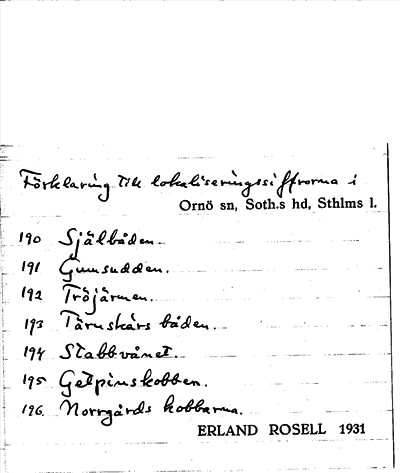 Förklaring till lokaliseringssiffrorna i
Ornö sn, Soth.s hd, Sthlms l.
190 Själbåden.
191 Gumsudden.
192 Tröjärmen.
193 Tärnskärs båden.
194 Stabbvånet.
195 Getpinskobben.
196. Norrgårds kobbarna.
ERLAND ROSELL 1931